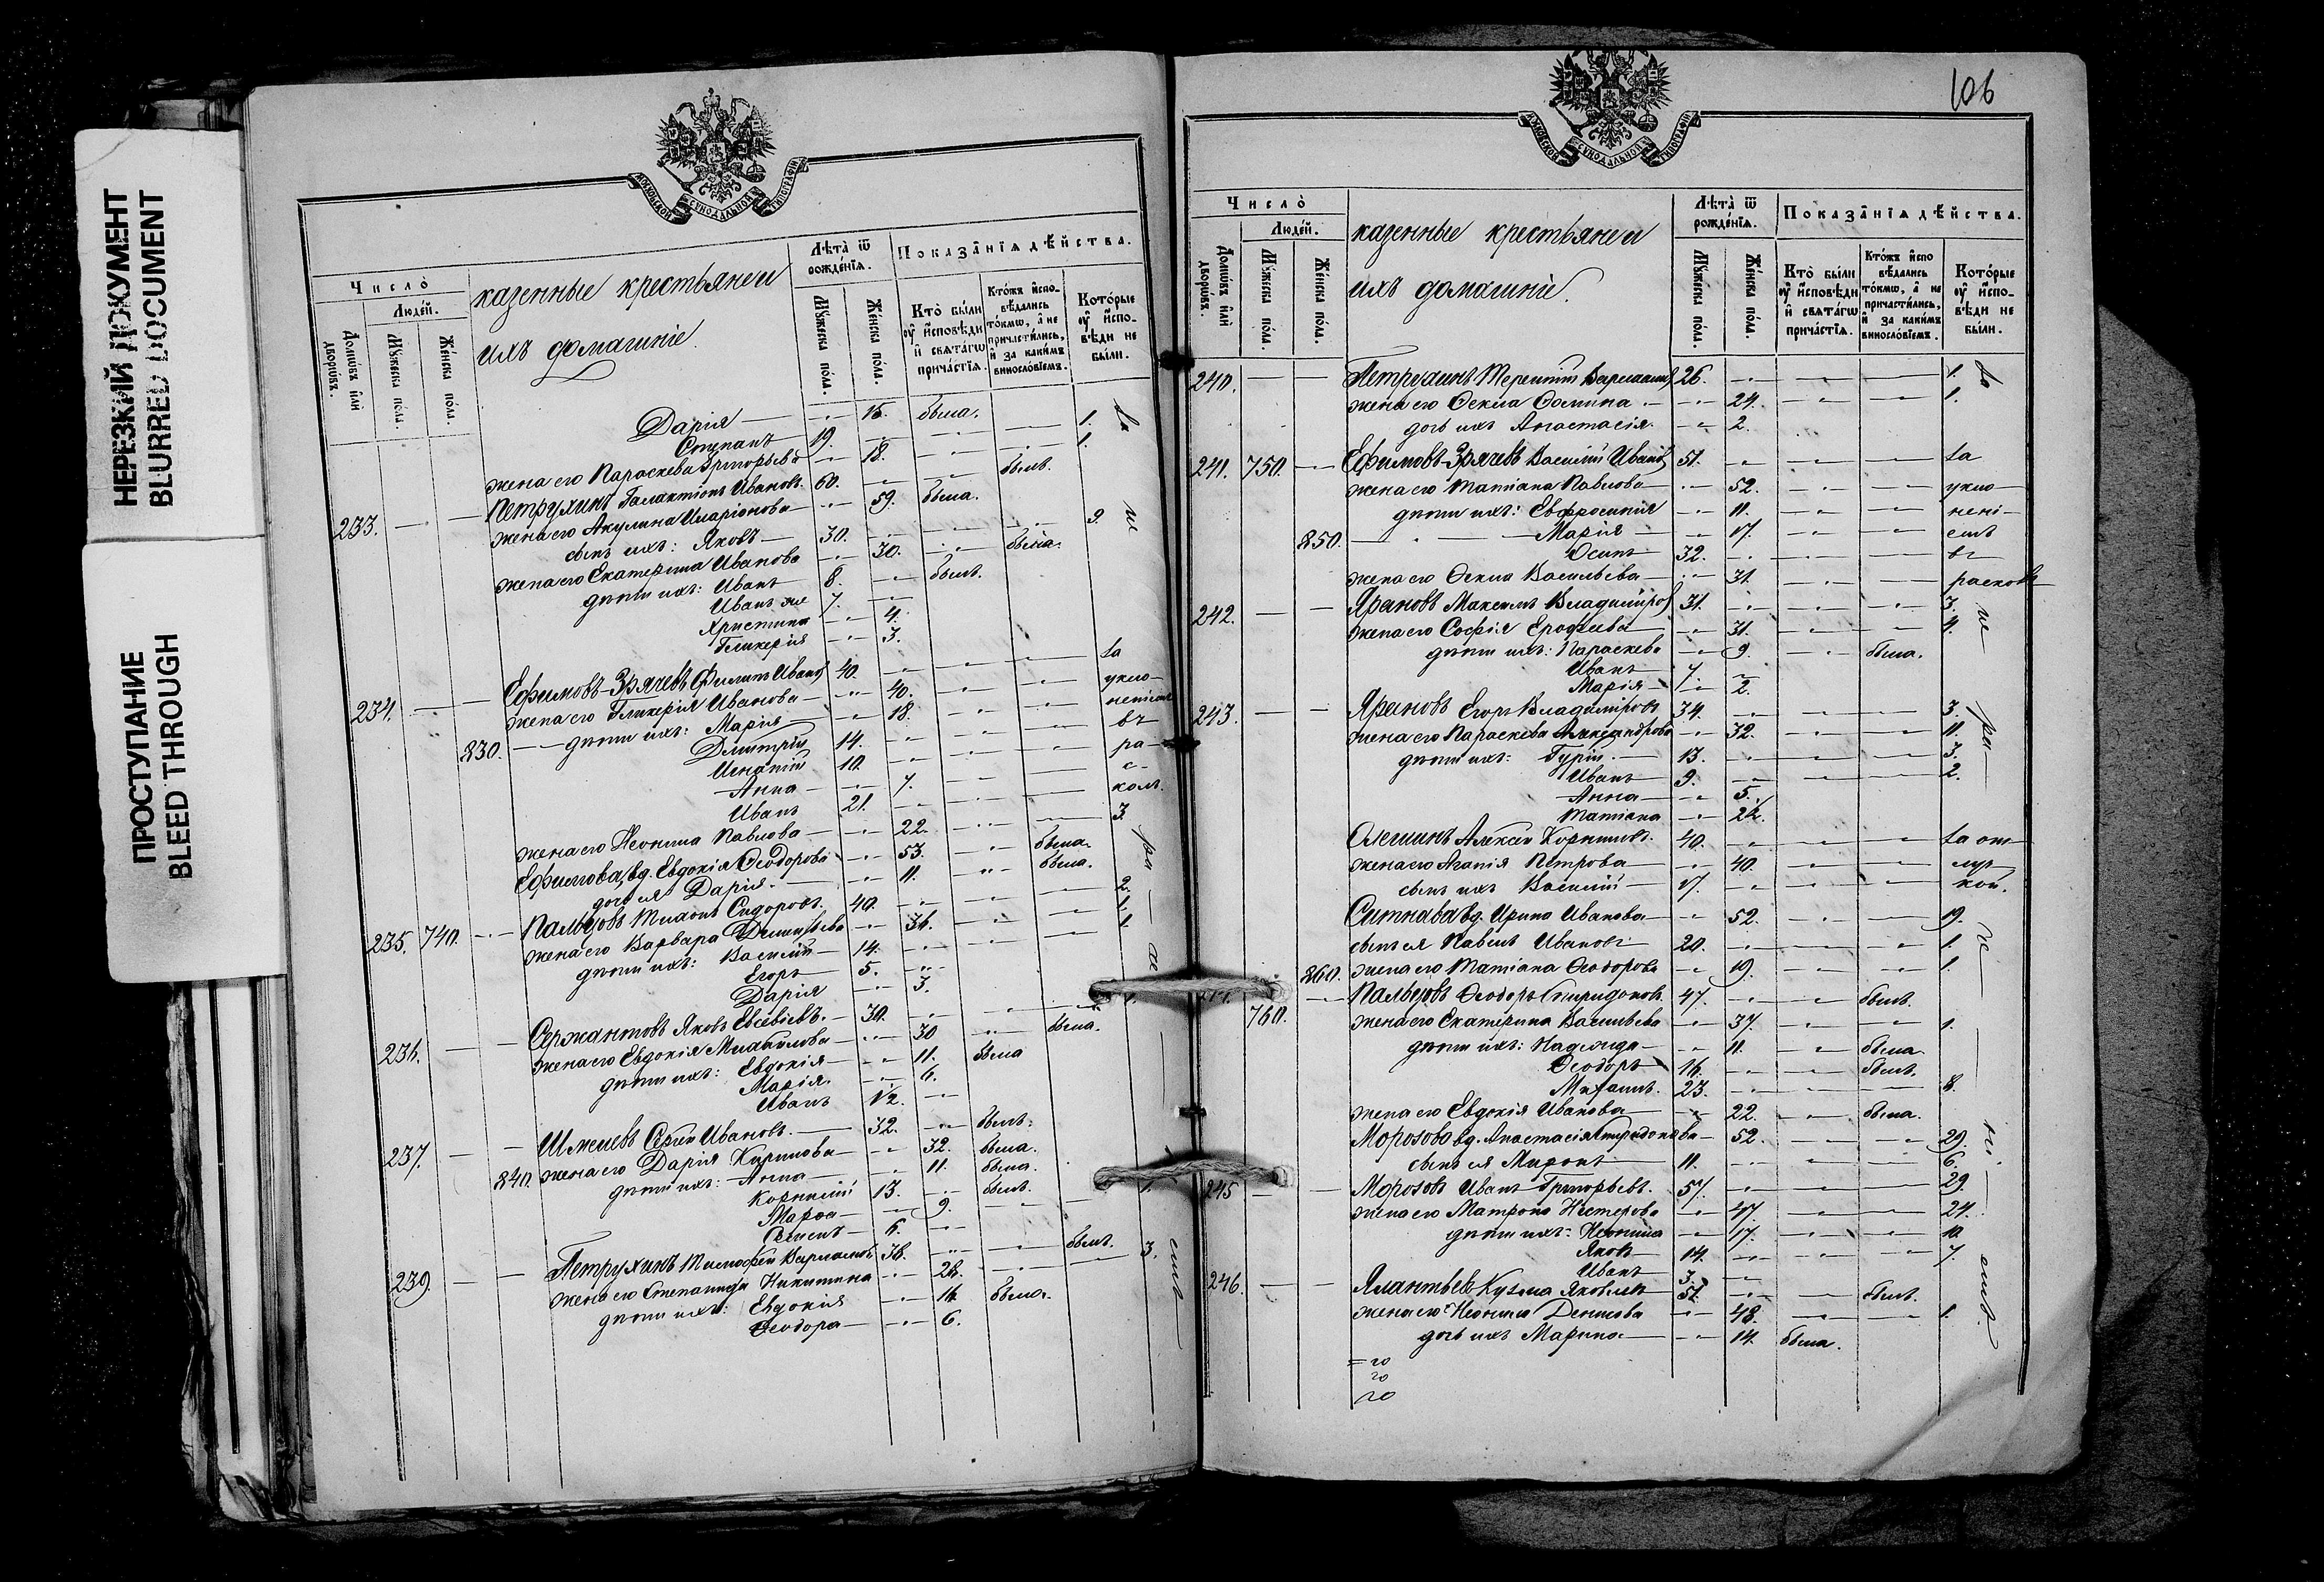 НЕРЕЗКИЙ ДОКУМЕНТ
BLURRED DOCUMENT
ПРОСТУПАНИЕ
BLEED THROUGH
МОСКОВСКОЙ СѴНОДАЛЬНОЙ ТИПОГРАФІИ
Число̀
Людей.
Домѡвъ или дворѡвъ.
Мꙋжеска пола.
Женска пола.
казенные крестьяне и
ихъ домашніе.
Лѣта ѿ рожденїѧ.
Мꙋжеска пола.
Женска пола.
Показанїѧ дѣйства.
Кто были ᲂу҆ исповѣди и свѧтагѡ причастїѧ.
Ктожъ исповѣдались токмѡ, а не причастились, и за какимъ винословїемъ.
Которые ᲂу҆ исповѣди не были.
Дарія — 16. была.
Степанъ 19. 1.
жена его Параскева Григорьева 18. 1.
233. Петрухинъ Галактіонъ Ивановъ 60. былъ.
жена его Акулина Иларіонова 59. была.
сынъ ихъ: Яковъ 30. 9.
жена его Екатерина Иванова 30. была.
дѣти ихъ: Иванъ 8. былъ.
Иванъ же 7.
Христина 4.
Гликерія 3.
234. Ефимовъ-Зрячевъ Филипъ Иванов 40. за
жена его Гликерія Иванова 40. укло-
830. дѣти ихъ: Марія 18. неніемъ
Димитрій 14. въ
Игнатій 10. ра-
Анна 7. с-
Иванъ 21. колъ.
жена его Неонила Павлова 22. 3.
Ефимова, вд. Евдокія Ѳеодорова 53. была.
дочь ея Дарія. 11. была.
235. 740. Пальцовъ Тихонъ Сидоровъ. 40. 2.
жена его Варвара Димитріева 36. 1.
дѣти ихъ: Василій 14. 1.
Егоръ 5.
Дарія 3.
236. Сержантовъ Яковъ Евсевіевъ. 30. 1.
жена его Евдокія Михайлова 30 была.
дѣти ихъ: Евдокія 11. была
Марія. 6.
Иванъ 1/2.
237. Ивановъ. 32. былъ.
840. жена его Дарія Кирилова 32. была.
дѣти ихъ: Анна 11. была.
Корнилій 13. былъ.
Марѳа 9.
6.
239. Петрухинъ Тимофей Варламовъ 36. былъ.
жена его Степанида Никитина 28. 3.
дѣти ихъ: Евдокія 16. была.
Ѳеодора 6.
106
МОСКОВСКОЙ СѴНОДАЛЬНОЙ ТИПОГРАФІИ
Число̀
Людей.
Домѡвъ или дворѡвъ.
Мꙋжеска пола.
Женска пола.
казенные крестьяне и
ихъ домашніе.
Лѣта ѿ рожденїѧ.
Мꙋжеска пола.
Женска пола.
Показанїѧ дѣйства.
Кто были ᲂу҆ исповѣди и свѧтагѡ причастїѧ.
Ктожъ исповѣдались токмѡ, а не причастились, и за какимъ винословїемъ.
Которые ᲂу҆ исповѣди не были.
240. Петрухинъ Терентій Варламов 26. 1.
жена его Ѳекла Ѳомина 24. 1.
дочь ихъ Анастасія. 2.
241. 750. Ефимовъ-Зрячевъ Василій Иванов 51. за
жена его Татіана Павлова 52. укло-
дѣти ихъ: Евфросинія 11. нені-
850. Марія 17. емъ
Осипъ 32. въ
жена его Ѳекла Васильева 31. расколъ
242. Ярановъ Максимъ Владиміров 31. 3.
жена его Софія Ерофеева 31. 4.
дѣти ихъ: Параскева 9. была.
Иванъ 7.
Марія 2.
243. Ярановъ Егоръ Владиміровъ 34. 3.
жена его Параскева Александрова 32. 11.
дѣти ихъ: Гурій 13. 3.
Иванъ 9. 2.
Анна 5.
Татіана
Олешинъ Алексей Корниловъ. 40. за от-
жена его Агапія Петрова 40. луч-
сынъ ихъ Василій 17. кой.
вд. Ирина Иванова 52. 19.
сынъ ея Павелъ Ивановъ 20. 1.
860. жена его Татіана Ѳеодорова 19. 1.
Пальцовъ Ѳеодоръ Спиридоновъ. 47. былъ.
760. жена его Екатерина Васильева 37. 1.
дѣти ихъ: Надежда 11. была
Ѳеодоръ 16. былъ.
Михаилъ. 23. 8.
жена его Евдокія Иванова 22. была.
Морозова вд. Анастасія Спиридонова 52. 29.
сынъ ея Миронъ 11. 6.
245 Морозовъ Иванъ Григорьевъ. 57. 29.
жена его Матрона Нестерова 47 24.
дѣти ихъ: Неонила 17. 10.
Яковъ 14. 7.
Иванъ 3.
246. Кузьма Яковлевъ 51. былъ.
жена его Неонила Денисова 48. 1.
дочь ихъ Марина 14. была.